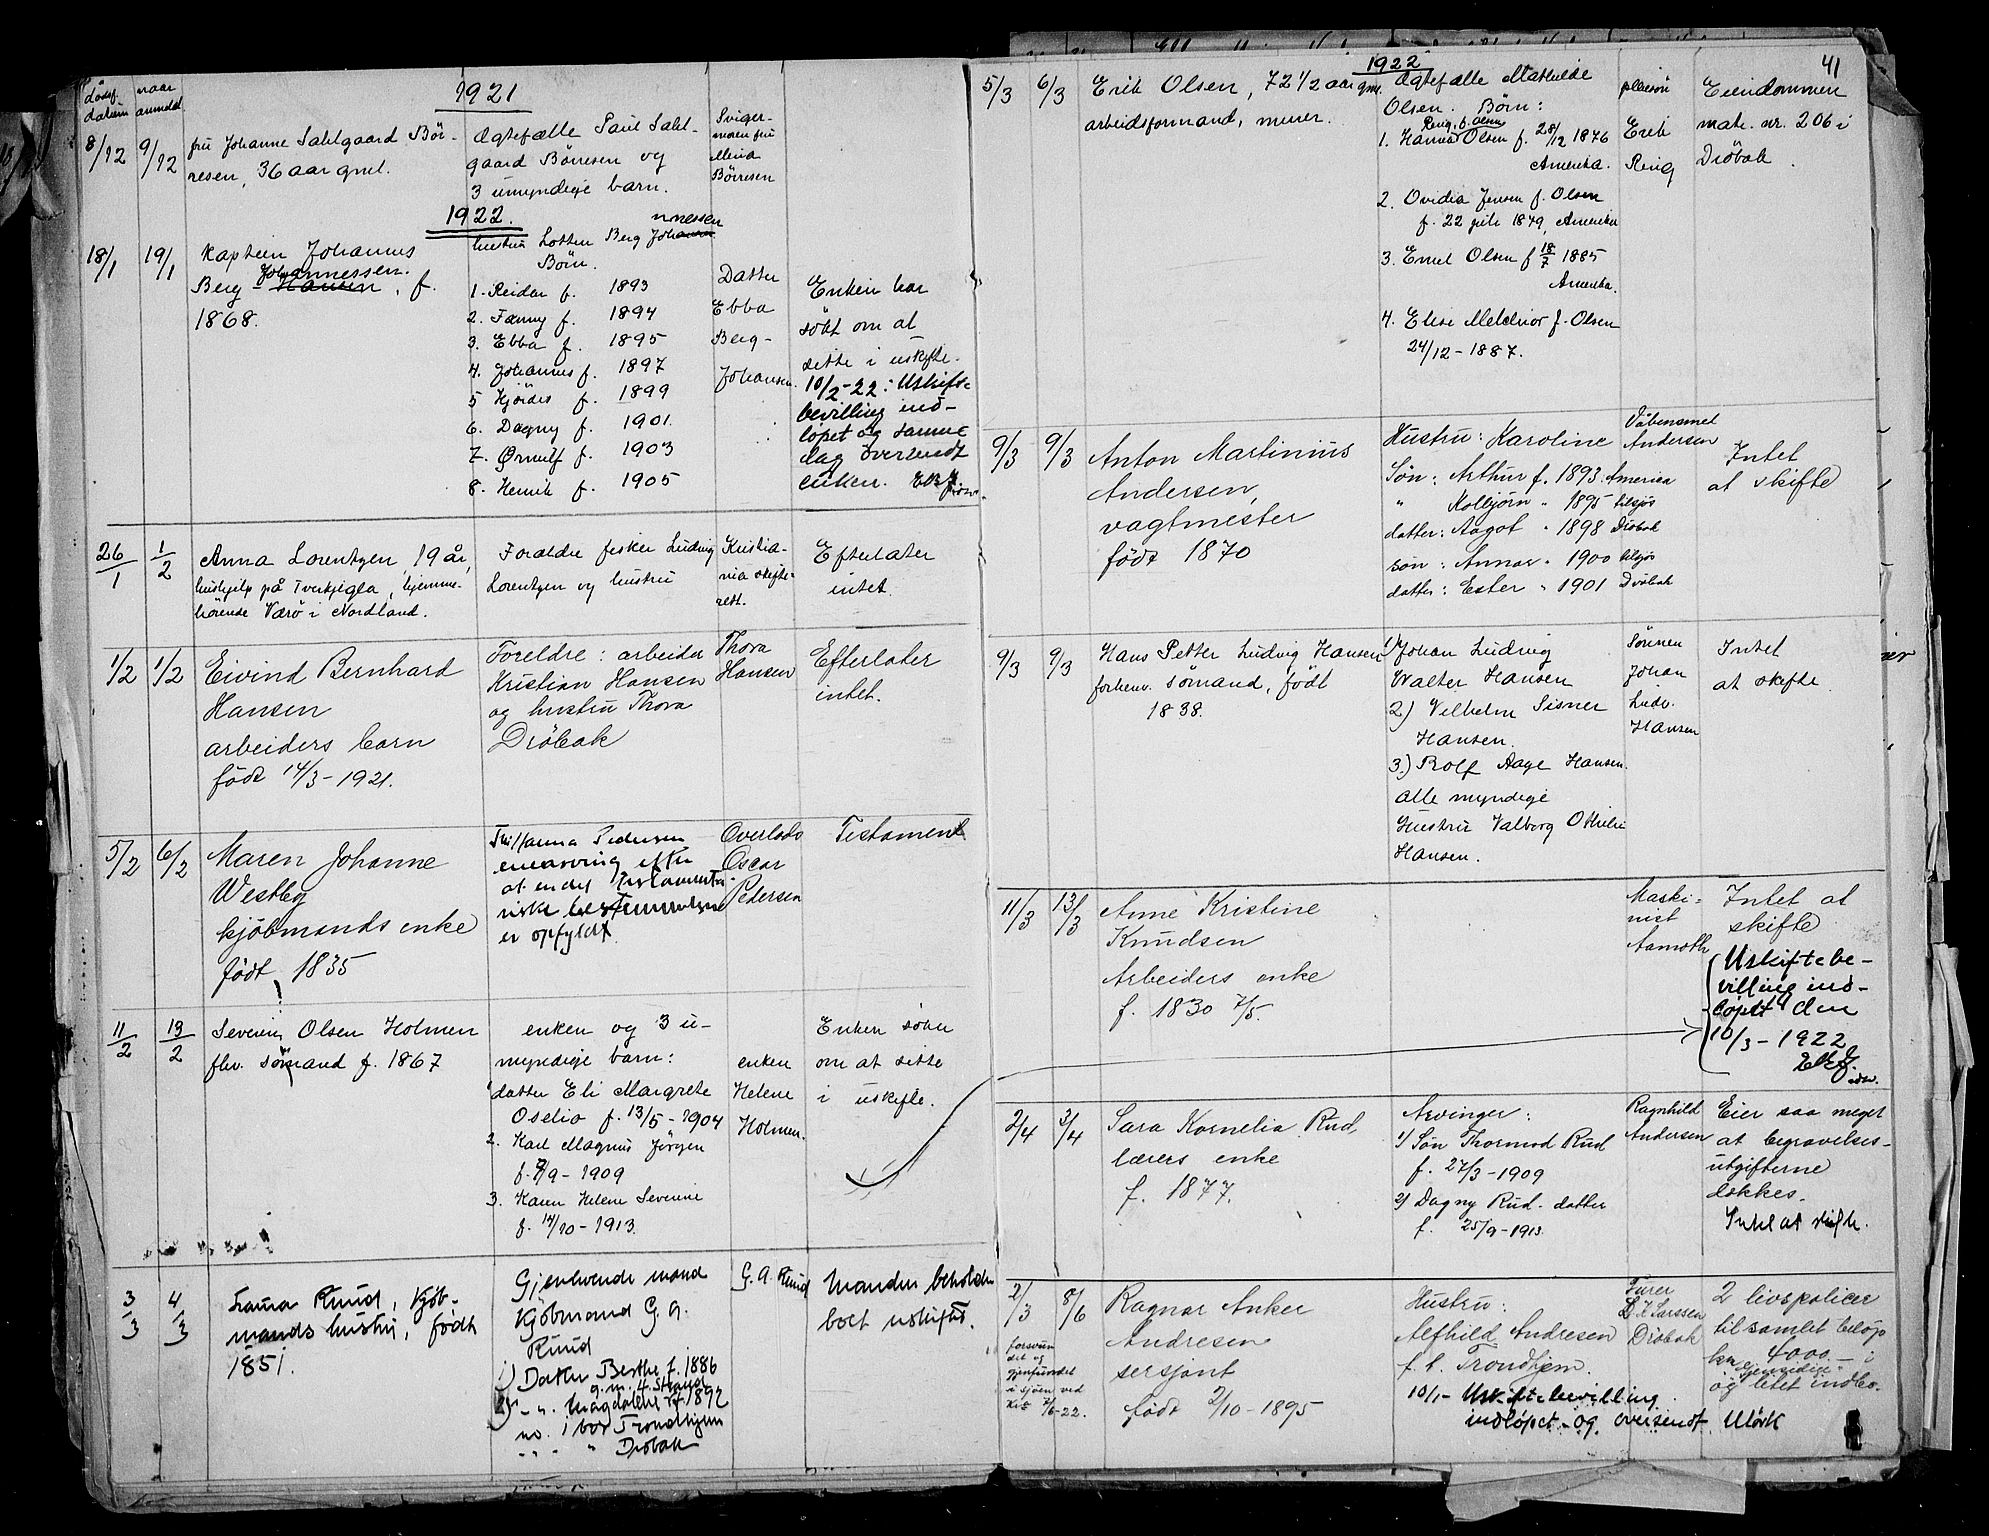 1921
døds-
datum
naar
anmeldt
8/12
9/12
fru Johanne Sahlgaard Bör-
resen, 36 aar gml.
Ægtefælle Paul Sahl-
gaard Börresen og
3 umyndige barn.
Sviger-
moren fru
Mina
Börresen
1922.
18/1
19/1
Kaptein Johannes
Johannessen.
Berg - Hansen, f.
1868.
nnessen
hustru Lotten Berg Johansen
Börn.
1. Reidar f. 1893
2. Fanny f. 1894
3. Ebba f. 1895
4. Johannes f. 1897
5 Hjördis f. 1899
6. Dagny f. 1901.
7. Ørnulf f. 1903
8. Henrik f. 1905
Datter
Ebba
Berg-
Johansen.
Enken har
sökt om at
sitte i uskifte.
10/2-22: Uskifte-
bevilling ind-
löpet og samme
dag oversendt
enken.
26/1
1/2
Anna Lorentzen, 19 år,
hushjelp på Tverkjegla, hjemme-
hörende Værö i Nordland.
Foreldre fisker Ludvig
Lorentzen og hustru
Kristia-
nia skifte-
rett.
Efterlater
intet.
1/2
1/2
Eivind Bernhard
Hansen
arbeiders barn
födt 14/3-1921.
Foreldre: arbeider
Kristian Hansen
og hustru Thora
Dröbak
Thora
Hansen
Efterlater
intet.
5/2
6/2
Maren Johanne
Westby
kjöbmands enke
födt 1835
Hanna Pedersen
enearving efter
at endel testamenta-
riske bestemmelser
er opfyldt.
Overlods
Oscar
Pedersen
Testament
11/2
13/2
Severin Olsen Holmen
fhv. sömand f. 1867
enken og 3 u-
myndige barn:
1 datter Eli Margrete
Oselio f. 13/5-1904
2. Karl Magnus Jörgen
f. 7/9-1909
3. Karen Helene Severine
f. 14/10-1913.
enken
Helene
Holmen.
Enken söker
om at sitte
i uskifte.
3/3
4/3
Ruud, Kjöb-
mands hustru, födt
1851.
Gjenlevende mand
Kjöbmand G. A.
Ruud
1) Datter Berthe f. 1886
g.m. 4. Strand
2) -"- Magdalene f. 1892
no. 1 bor Trondhjem
" - " Dröbak
G. A. Ruud
Manden beholder
boet uskiftet.
41
1922
5/3
6/3
Erik Olsen, 72 1/2 aar gml.
arbeidsformand, murer.
Ægtefælle Mathilde
Olsen. Börn:
Ring, f. Olsen
1. Hanna Olsen f. 28/12 1876
Amerika.
2. Ovidia Jensen f. Olsen
f. 22 juli 1879, Amerika
3. Emil Olsen f 18/7 1885
Amerika.
4. Elise Melchior f. Olsen
24/12-1887.
pleiesön
Erik
Ring
Eiendommen
matr. nr. 206 i
Dröbak.
9/3
9/3
Anton Martinius
Andersen,
vagtmester
födt 1870
Hustru: Karoline
Søn: Arthur f. 1893. Amerika
" Kolbjörn " 1895 tilsjös
datter: Aagot " 1898 Dröbak
søn: Annar " 1900 tilsjös
datter: Ester " 1901 Dröbak
Våbensmed
Andersen
Intet
at skifte
9/3
9/3
Hans Petter Ludvig Hansen
forhenv. sömand, födt
1838.
1) Johan Ludvig
Walter Hansen
2) Vilhelm Sisner
Hansen.
3.) Rolf Aage Hansen.
alle myndige
Hustru Valborg Othilie
Hansen.
Sönnen
Johan
Ludv.
Hansen
Intet
at skifte.
11/3
13/3
Anne Kristine
Knudsen
Arbeiders enke
f. 1830 7/5.
Maski-
nist
Aamoth
Intet at
skifte
Uskiftebe-
villing ind-
löpet den
10/3-1922
2/4
3/4
Sara Kornelia Rud,
lærers enke
f. 1877.
Arvinger:
1) Søn Thormod Rud
f. 27/3-1909
2) Dagny Rud - datter
f. 25/9-1913.
Ragnhild
Andersen
Eier saa meget
at begravelses-
utgifterne
dækkes.
Intet at skifte.
2/3
8/6
forsvun
det og
gjenfundet
i sjöen ved
7/6-22.
Ragnar Anker
Andresen
sersjant
födt 2/10-1895
Hustru:
Alfhild Andresen
f. i. Trondhjem.
10/1- Uskiftebevilling
indlöpet - og oversendt
Furer
Larssen
Dröbak
2 livspolicer
til samlet belöp
kr. 4000.- i
"Gjensidige"
og litet indbo.